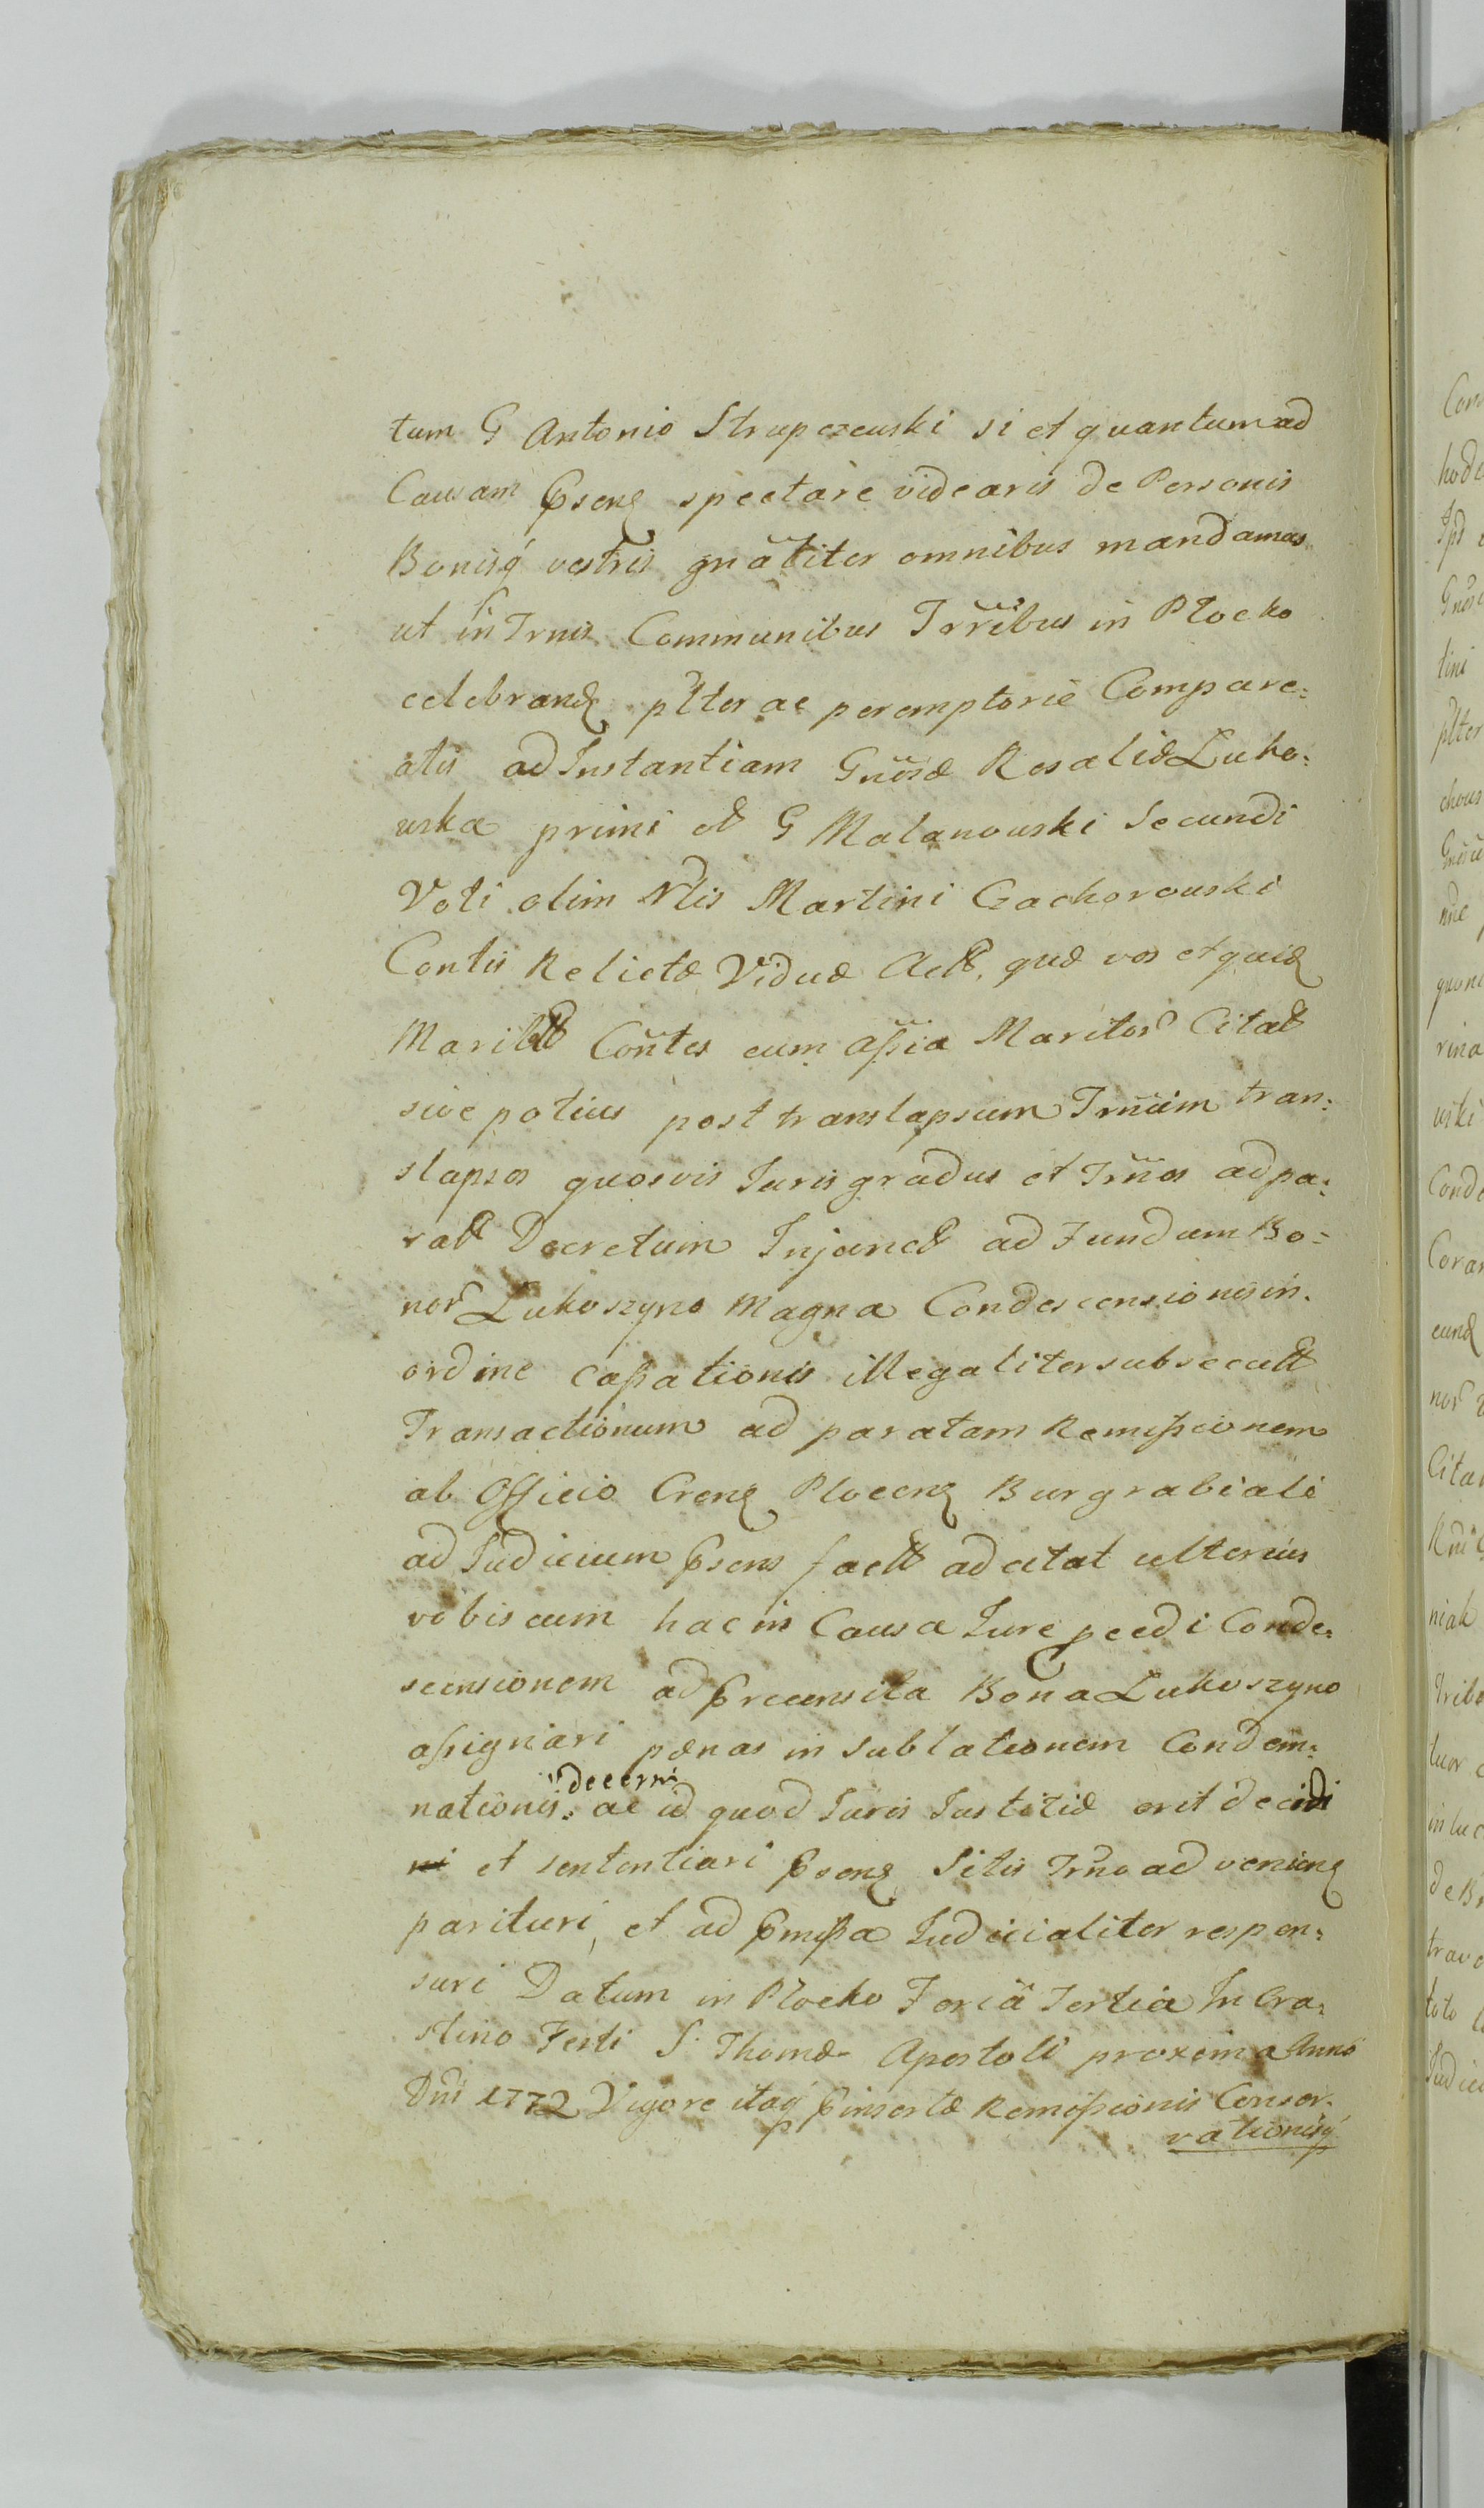 tum G Antonio Strupczewski si et quantum ad
Causam Pseng spectare videaris de Personis
Bonisq́ vestris gnãliter omnibus mandamus
ut in Trnis Communibus Trrĩbus in Płocko
celebrand pltter ac peremptorie Compare:
atis ad Instantiam Gnosæ Rosaliæ Luko:
wska primi et G Malanowski Secundi
Voti olim Nlis Martini Czachorowski
Contis Relictæ Viduæ Act, quæ vos et quid
Maritt Cõntes cum aßia Maritor Citat
sive potius post translapsum Trnũm tran:
slapsos quosvis Juris gradus et Trnõs ad pa:
rat Decretum Injunct ad Fundum Bo:
nor Lukoszyno Magna Condescensionis in
ordine caßationis illegaliter subsecutt
Transactionum ad paratam Remißionem
ab Officio Creng Płoceng Burgrabiali
ad Judicium Psens factt ad citat ulterius
vobiscum hac in Causa Jure pcedi Conde:
scensionem ad Precensita Bona Lukoszyno
aßignari pænas in sublationem Condem:
decerni
nationis: ac id quod Juris Justitiæ erit decidi
ni et sententiari Pseng Sitis Trno ad venieng
parituri, et ad Pmißa Judicialiter respon:
suri Datum in Płocko Feriã Tertia In Cra:
stino Festi S. Thomæ Apostoli proxima Anno
Dni 1772 Vigore itaq́ Pinsertæ Remißionis Conser:
vationisq́
Com
hodi
Ipd
Gnos
tini
pltter
chows
nne
rina
wski
Conde
Coram
eund
nor
Cita
niak
tribu
tuor
in luc
de B
trav
toto
Judici